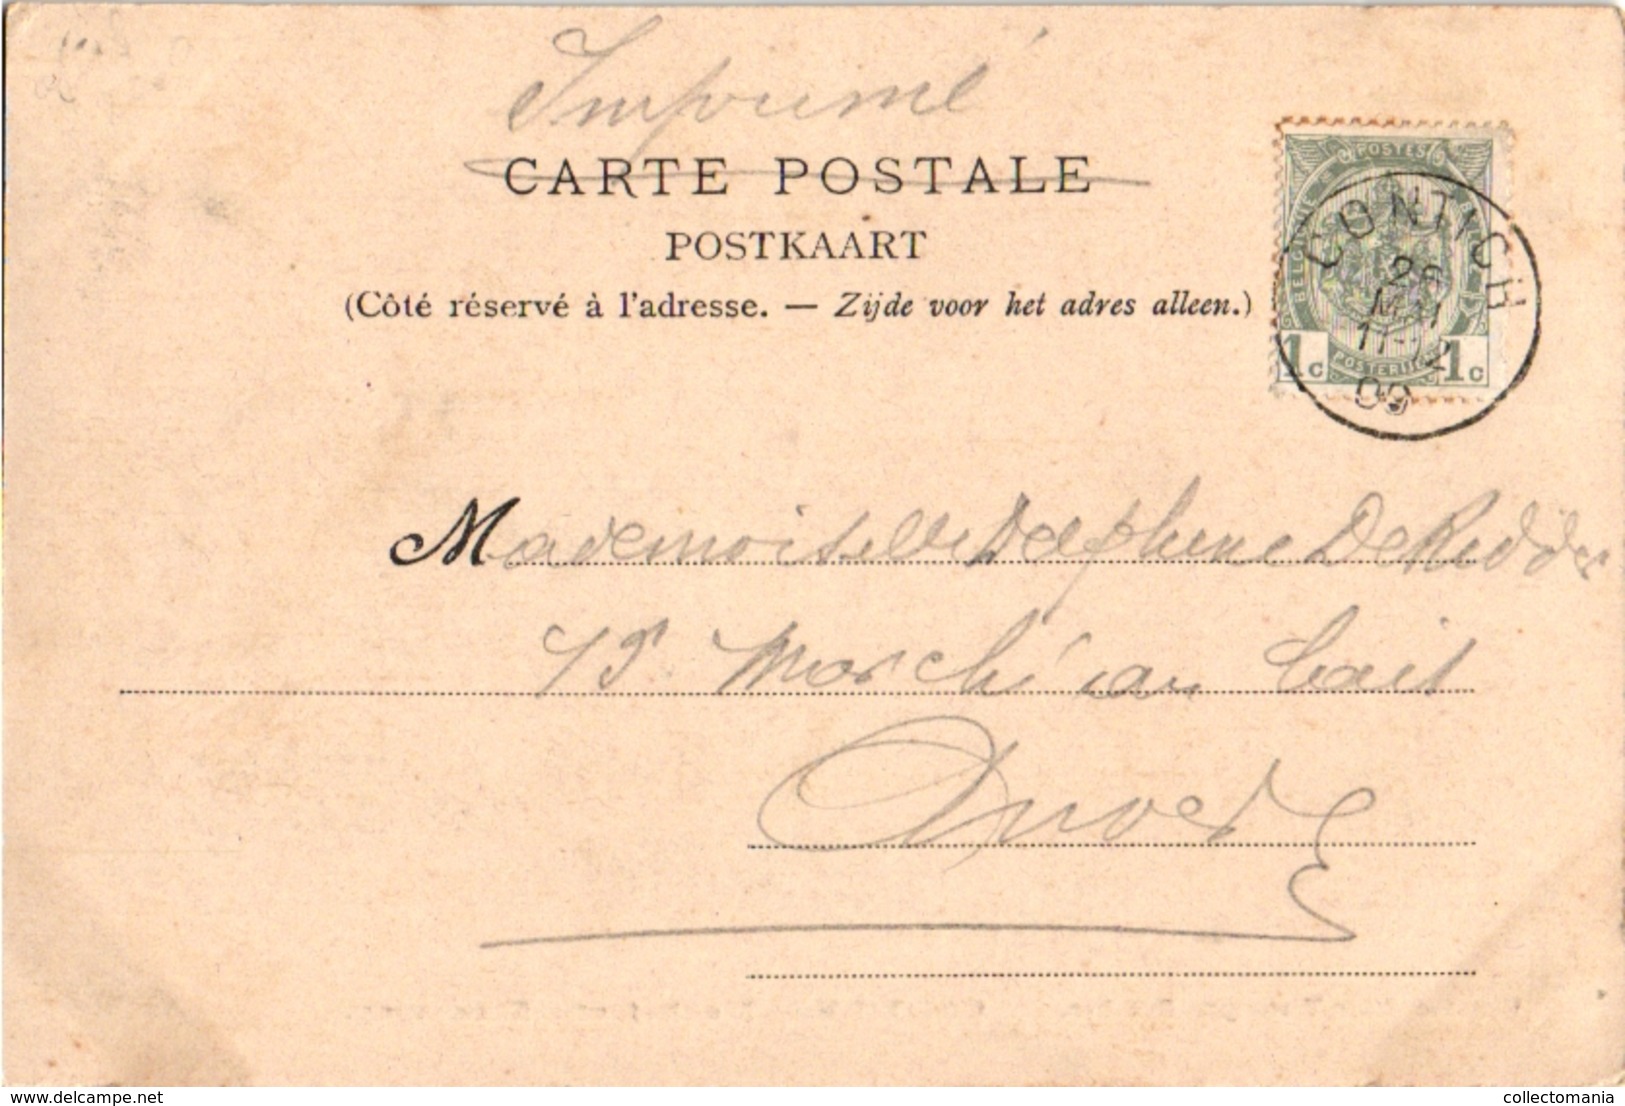 Imprimé
CARTE POSTALE
POSTKAART
(Côté réservé à l'adresse. — Zijde voor het adres alleen.)
POSTES
BELGIQUE
BELGIË
POSTERIJEN
1c 1c
CONTICH
26
MAI
11-12
09
Mademoiselle Delphene De Ridder
13 Marché au Lait
Anvers
www.delcampe.net
collectomania